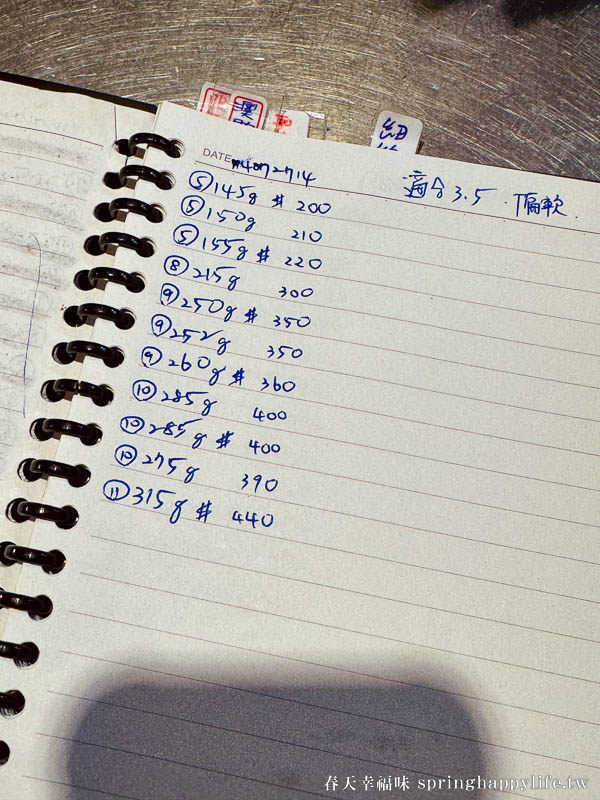 細
DATE
適合3.5.偏軟.
⑤145g # 200
⑤150g 210
⑤155g # 220
⑧215g 300
⑨250g # 350
⑨252g 350
⑨260g # 360
⑩285g 400
⑩285g # 400
⑩275g 390
⑪315g # 440
春天幸福味 springhappylife.tw